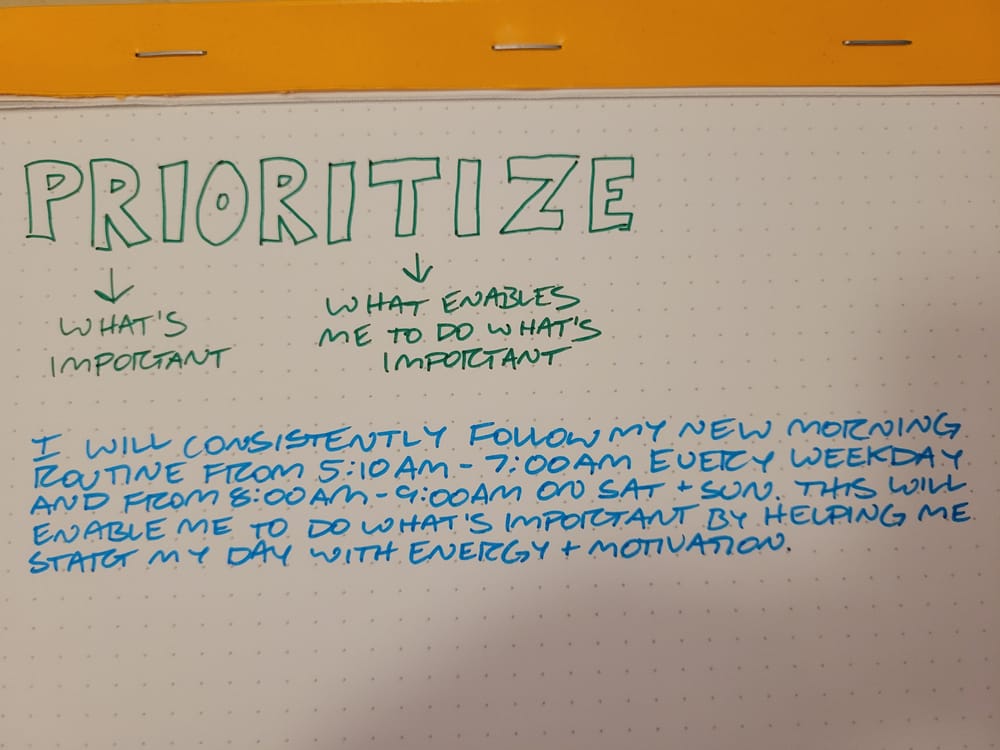 PRIORITIZE
↓ ↓
WHAT'S
IMPORTANT
WHAT ENABLES
ME TO DO WHAT'S
IMPORTANT
I WILL CONSISTENTLY FOLLOW MY NEW MORNING
ROUTINE FROM 5:10 AM - 7:00 AM EVERY WEEKDAY
AND FROM 8:00 AM - 9:00 AM ON SAT + SUN. THIS WILL
ENABLE ME TO DO WHAT'S IMPORTANT BY HELPING ME
START MY DAY WITH ENERGY + MOTIVATION.